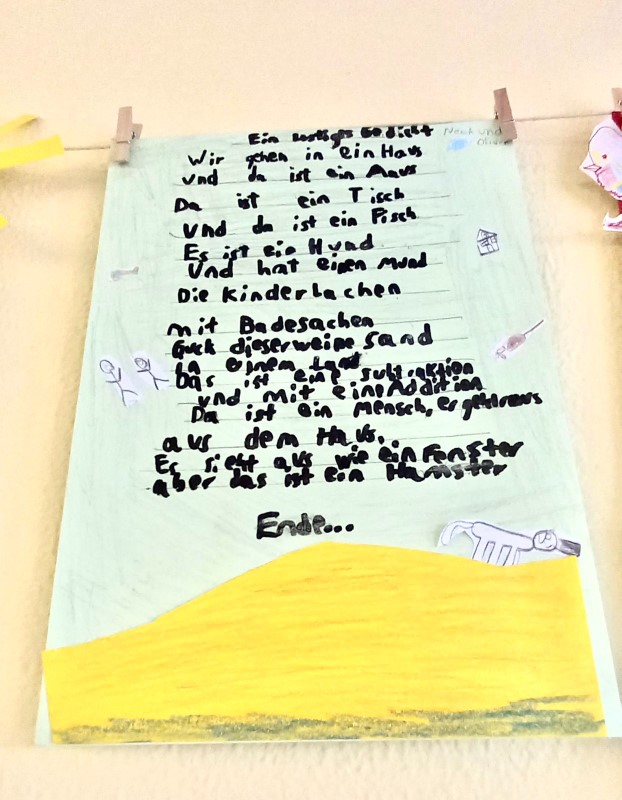 Ein lustiges Gedicht
Noah und
Wir gehen in ein Haus
und da ist ein Maus
Da ist ein Tisch
und da ist ein Fisch
Es ist ein Hund
Und hat einen Mund
Die Kinder lachen
mit Badesachen
Guck dieser weiße Sand
In einem Land
Das ist eine subtraktion
und mit eine Addition
Da ist ein Mensch, er geht raus
aus dem Haus,
Es sieht aus wie ein Fenster
aber das ist ein Hamster
Ende...